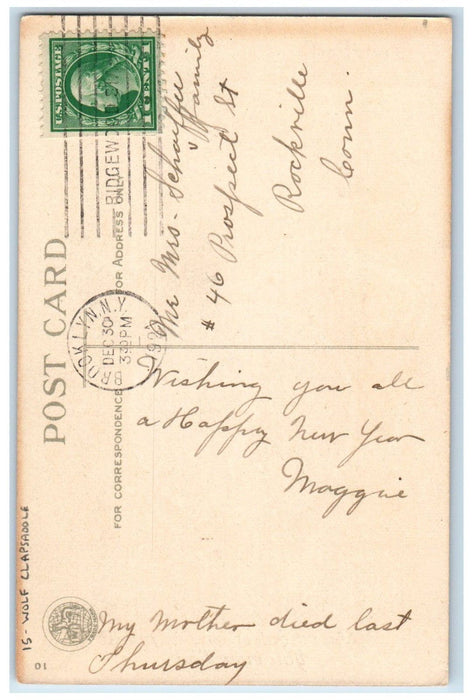 U.S. POSTAGE
1 CENT 1
RIDGEWO
BROOKLYN, N.Y.
DEC 30
PM
POST CARD
FOR CORRESPONDENCE
FOR ADDRESS ONLY
Mr Mrs. Schaffer
" family
# 46 Prospect St
Rockville
Conn.
Wishing you all
a Happy New Year
Maggie
My Mother died last
Thursday
15 - WOLF CLAPSADDLE
01